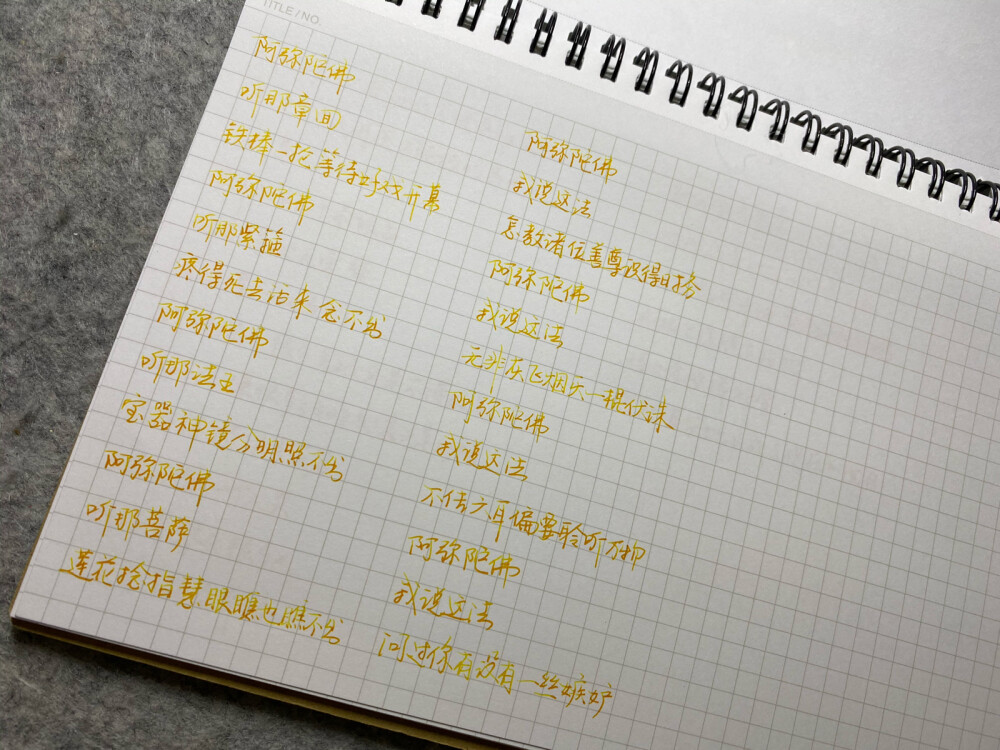 TITLE / NO.
阿弥陀佛
听那章回
铁棒一抡等待好戏开幕
阿弥陀佛
听那紧箍
疼得死去活来念不出
阿弥陀佛
听那法王
宝器神镜分明照不出
阿弥陀佛
听那菩萨
莲花捻指慧眼瞧也瞧不出
阿弥陀佛
我说这法
怎教诸位善尊误得时务
阿弥陀佛
我说这法
无非灰飞烟灭一棍伏诛
阿弥陀佛
我说这法
不传六耳偏要聆听万物
阿弥陀佛
我说这法
问过你有没有一丝嫉妒